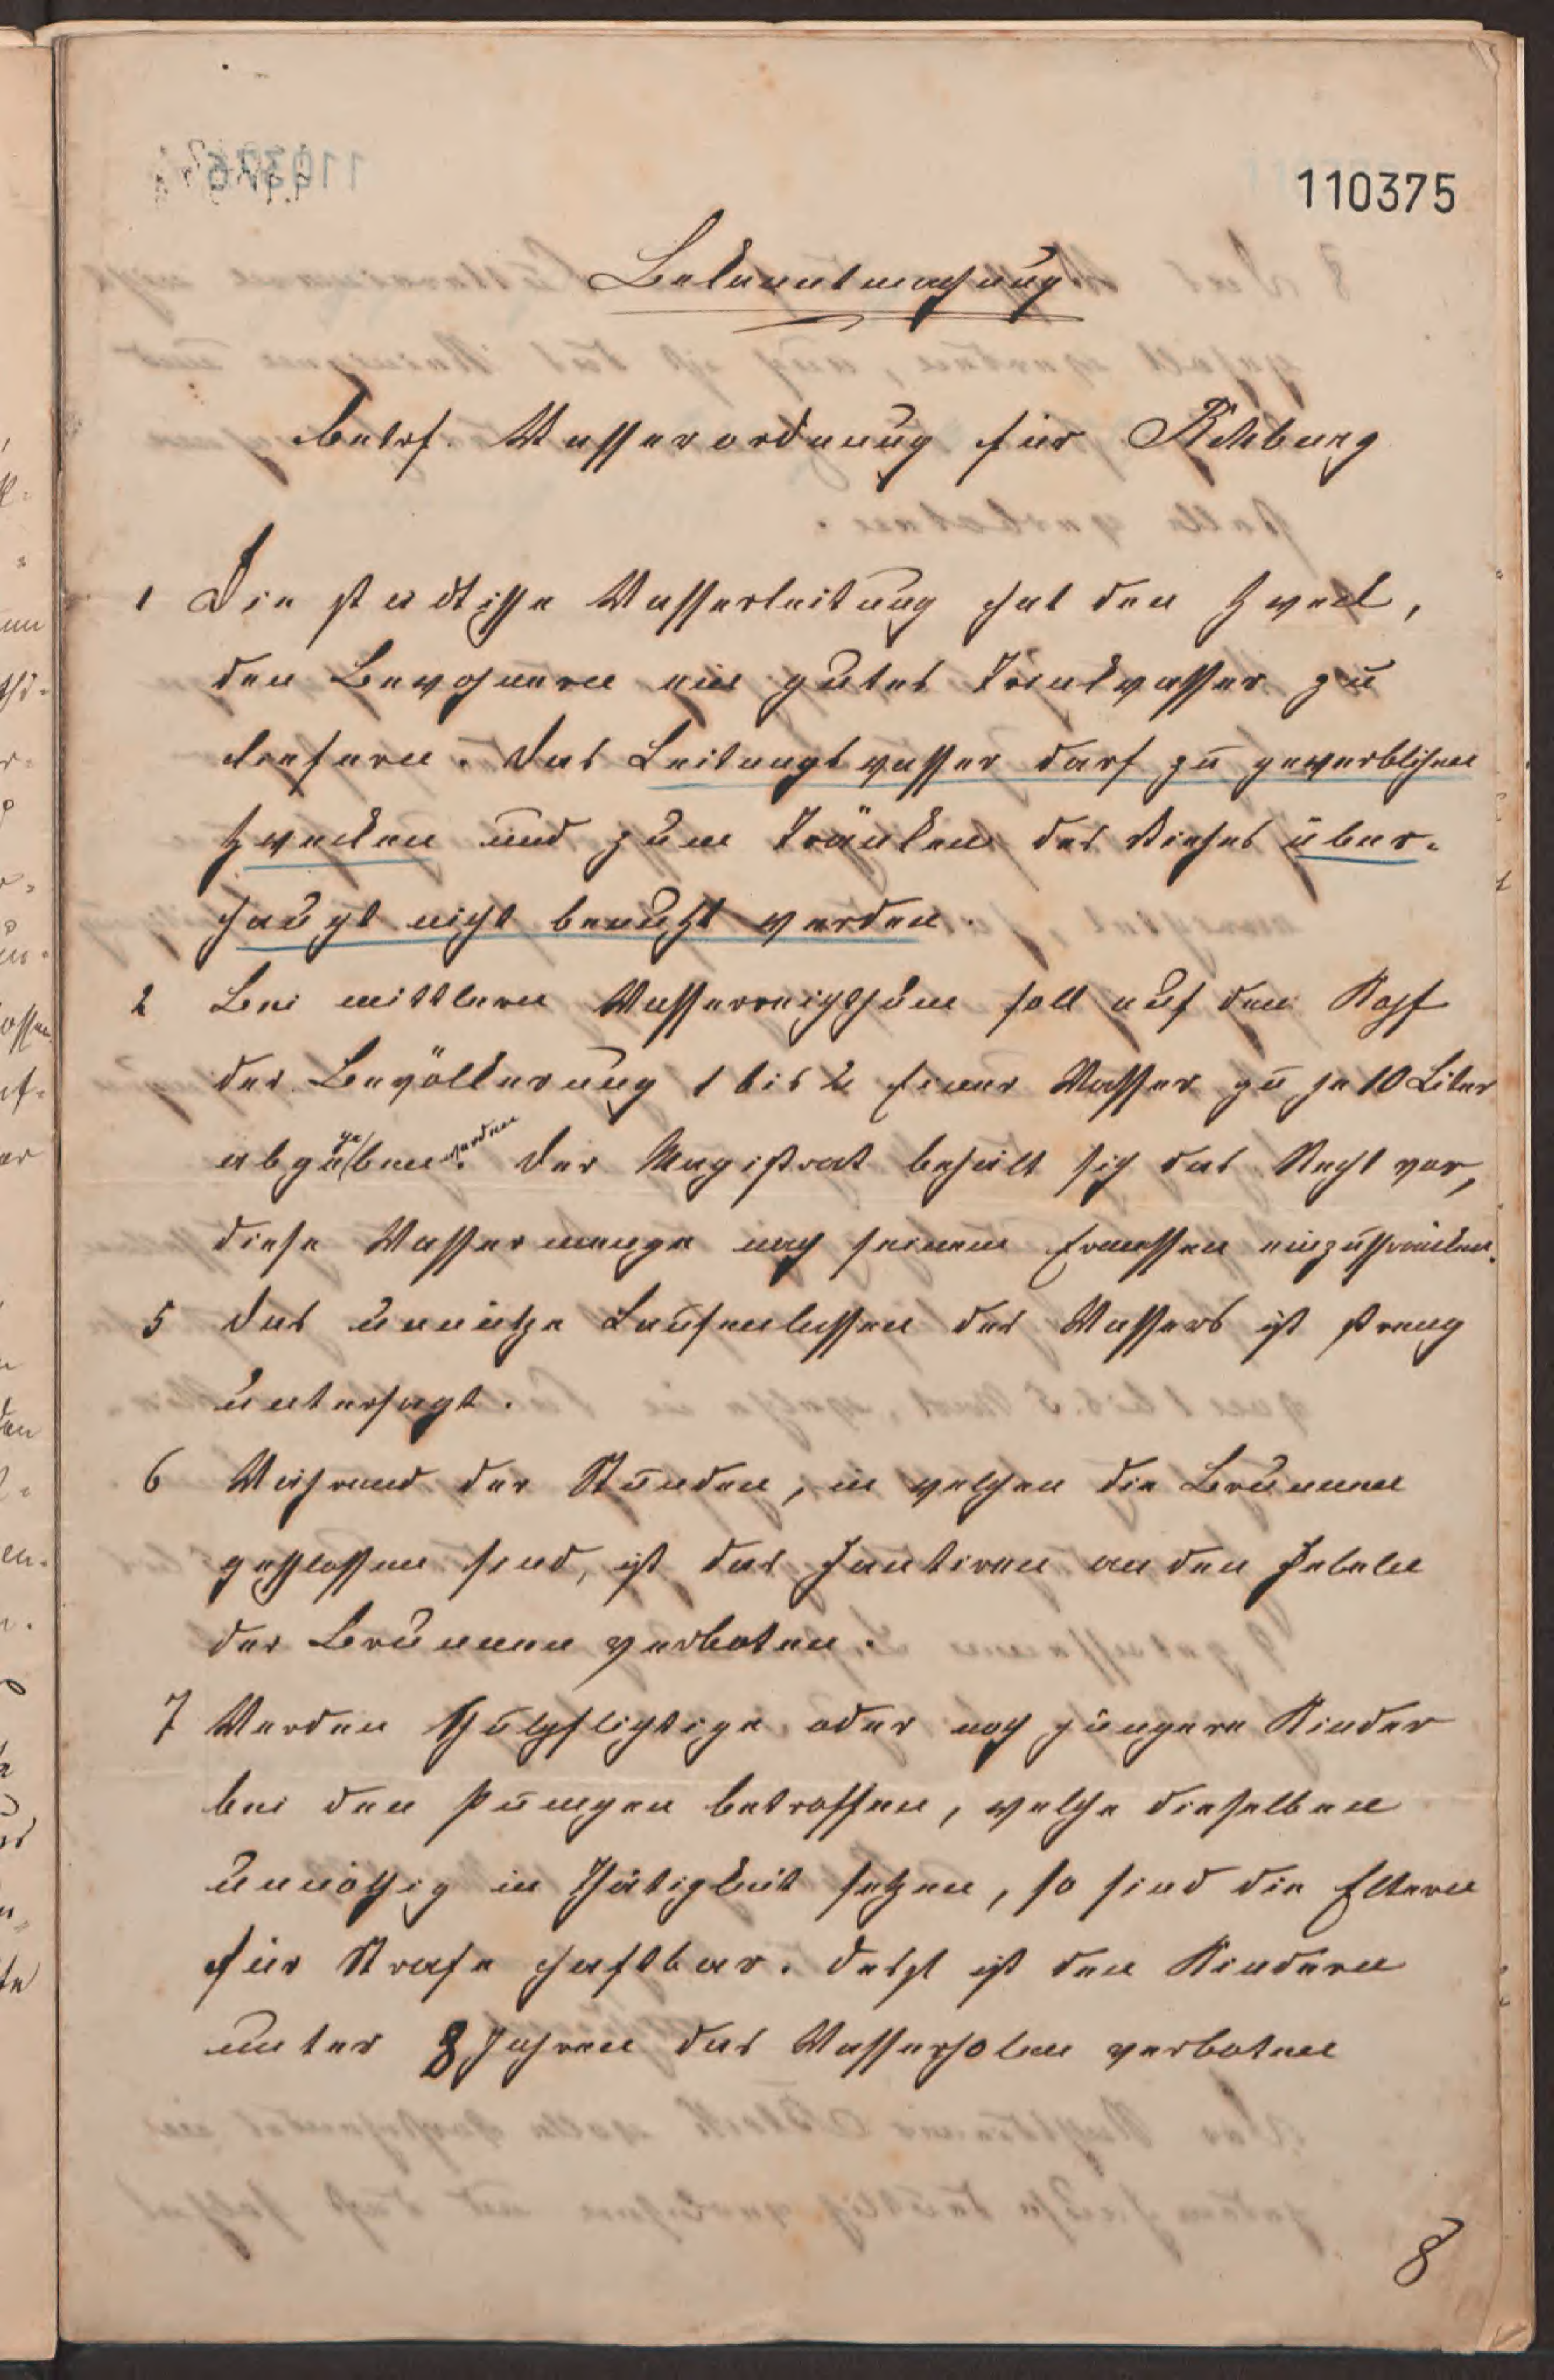 110375
Bekanntmachung
betrf. Wasserordnung für Rehburg
1 Die städtische Wasserleitung hat den Zweck,
den Bewohnern ein gutes Trinkwasser zu
liefern. Das Leitungswasser darf zu gewerblichen
Zwecken und zum Tränken des Viehes über-
haupt nicht benutzt werden.
2 Bei mittleren Wasserreichthum soll auf den Kopf
der Bevölkerung 1 bis 2 Eimer Wasser zu je 10 Liter
abgegeben werden. Der Magistrat behält sich das Recht vor,
diese Wassermenge nach seinem Ermessen einzuschränken.
5 Das unnütze Laufenlassen des Wassers ist streng
untersagt.
6 Während der Stunden, in welchen die Brunnen
geschlossen sind, ist das Hantiren an den Hebeln
der Brunnen verboten.
7 Werden Schulpflichtige oder noch jüngere Kinder
bei den Pumpen betroffen, welche dieselben
unnöthig in Thätigkeit setzen, so sind die Eltern
für Strafe haftbar. Jetzt ist den Kindern
unter 8 Jahren das Wasserholen verboten
8